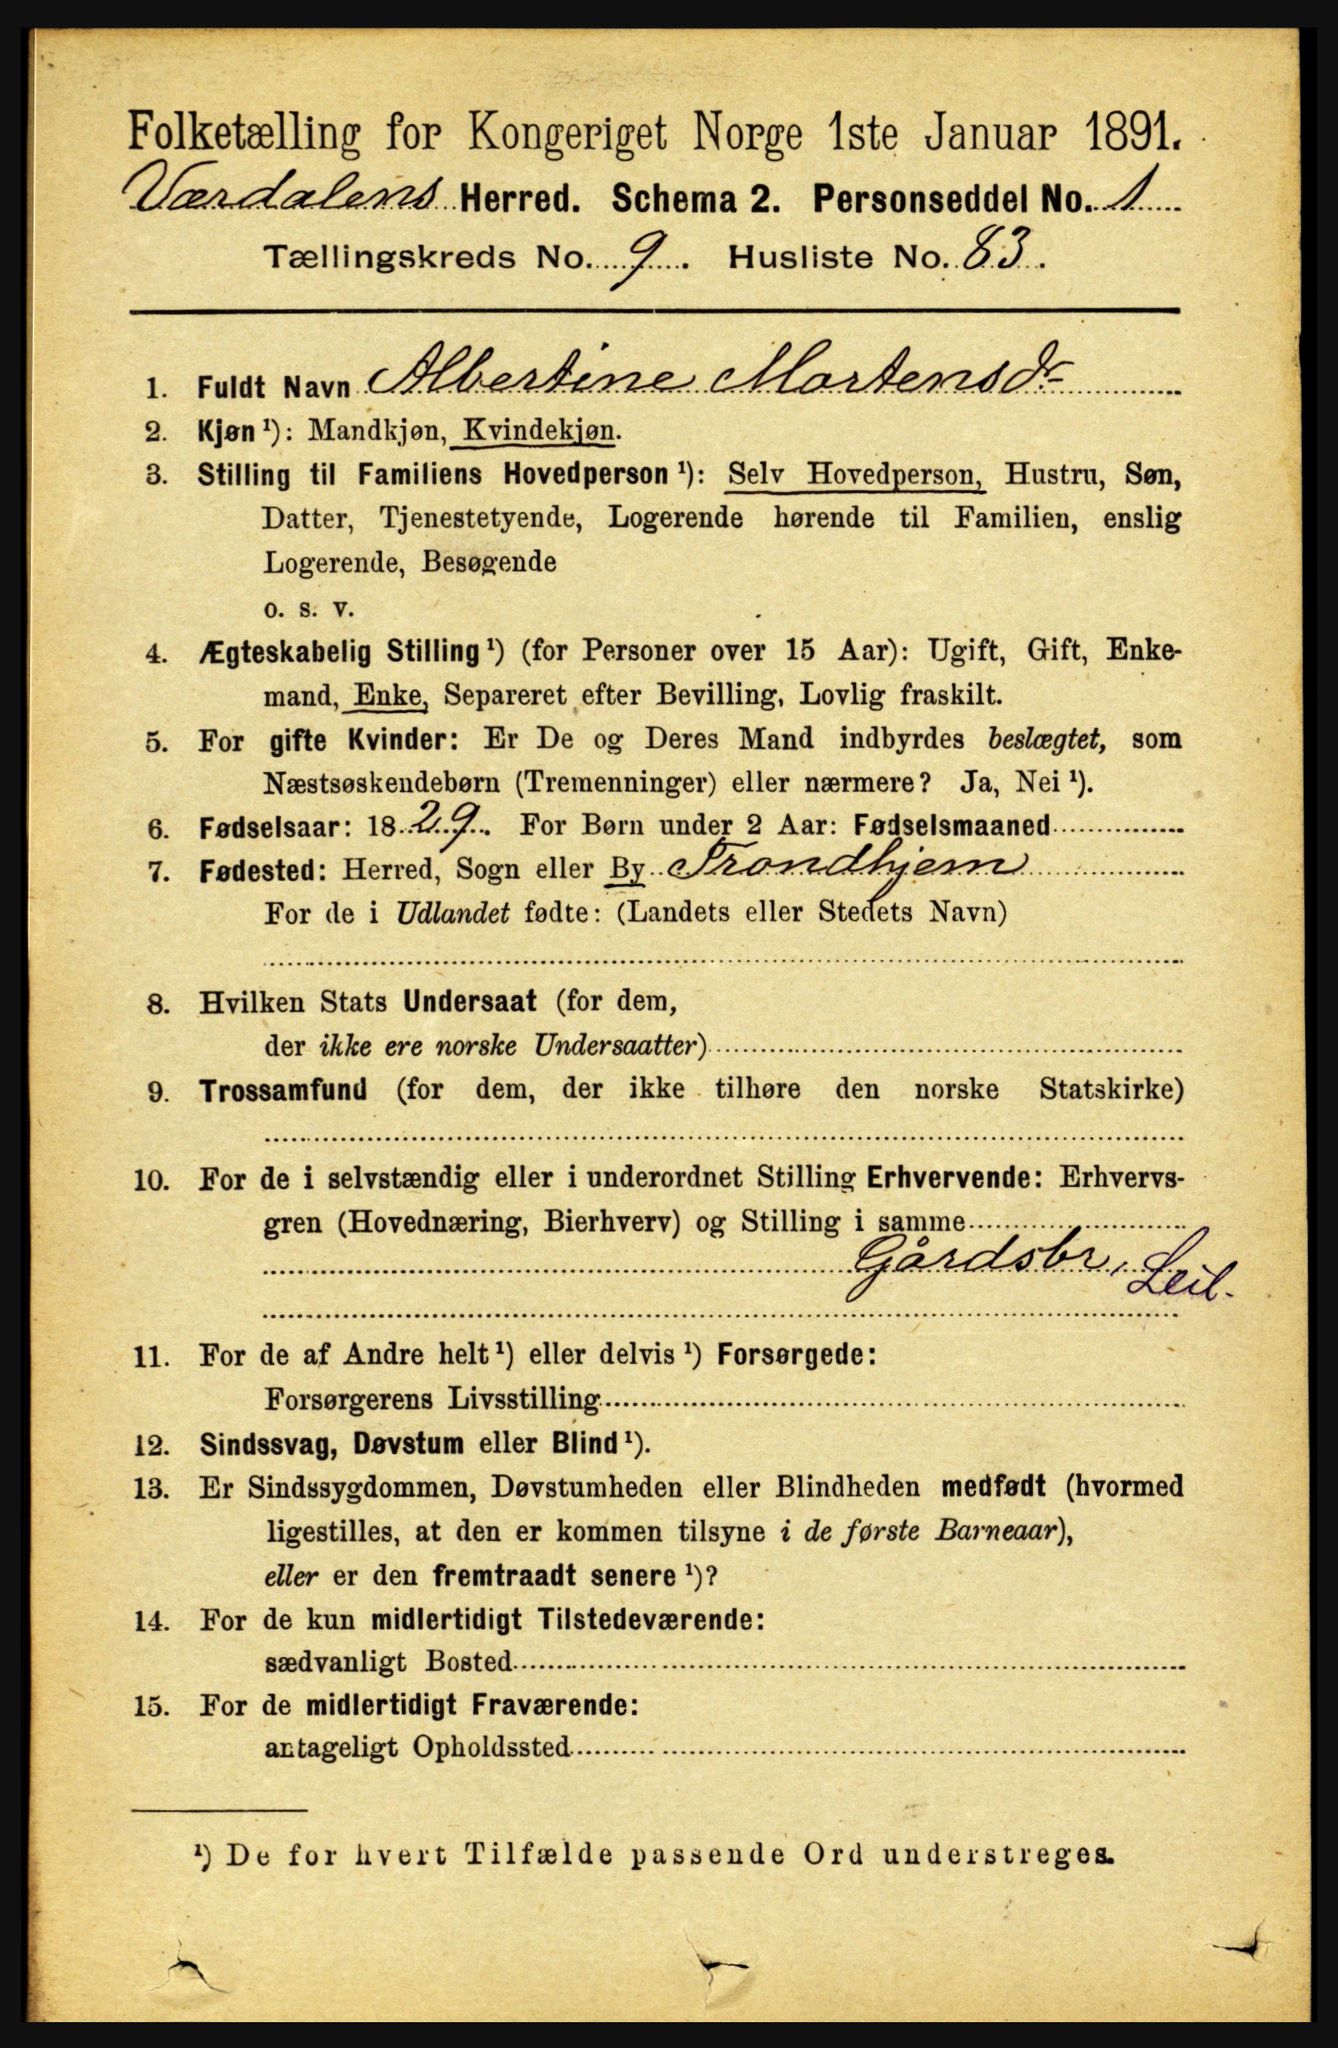 Folketælling for Kongeriget Norge 1ste Januar 1891.
Værdalens Herred. Schema 2. Personseddel No. 1
Tællingskreds No. 9. Husliste No. 83.
1. Fuldt Navn Albertine Martensdr
2. Kjøn ¹): Mandkjøn, Kvindekjøn.
3. Stilling til Familiens Hovedperson ¹): Selv Hovedperson, Hustru, Søn,
Datter, Tjenestetyende, Logerende hørende til Familien, enslig
Logerende, Besøgende
o. s. v.
4. Ægteskabelig Stilling ¹) (for Personer over 15 Aar): Ugift, Gift, Enke-
mand, Enke, Separeret efter Bevilling, Lovlig fraskilt.
5. For gifte Kvinder: Er De og Deres Mand indbyrdes beslægtet, som
Næstsøskendebørn (Tremenninger) eller nærmere? Ja, Nei ¹).
6. Fødselsaar: 1829. For Børn under 2 Aar: Fødselsmaaned
7. Fødested: Herred, Sogn eller By Trondhjem
For de i Udlandet fødte: (Landets eller Stedets Navn)
8. Hvilken Stats Undersaat (for dem,
der ikke ere norske Undersaatter)
9. Trossamfund (for dem, der ikke tilhøre den norske Statskirke)
10. For de i selvstændig eller i underordnet Stilling Erhvervende: Erhvervs-
gren (Hovednæring, Bierhverv) og Stilling i samme
Gårdsbr, Leil.
11. For de af Andre helt ¹) eller delvis ¹) Forsørgede:
Forsørgerens Livsstilling
12. Sindssvag, Døvstum eller Blind ¹).
13. Er Sindssygdommen, Døvstumheden eller Blindheden medfødt (hvormed
ligestilles, at den er kommen tilsyne i de første Barneaar),
eller er den fremtraadt senere ¹)?
14. For de kun midlertidigt Tilstedeværende:
sædvanligt Bosted
15. For de midlertidigt Fraværende:
antageligt Opholdssted
¹) De for hvert Tilfælde passende Ord understreges.